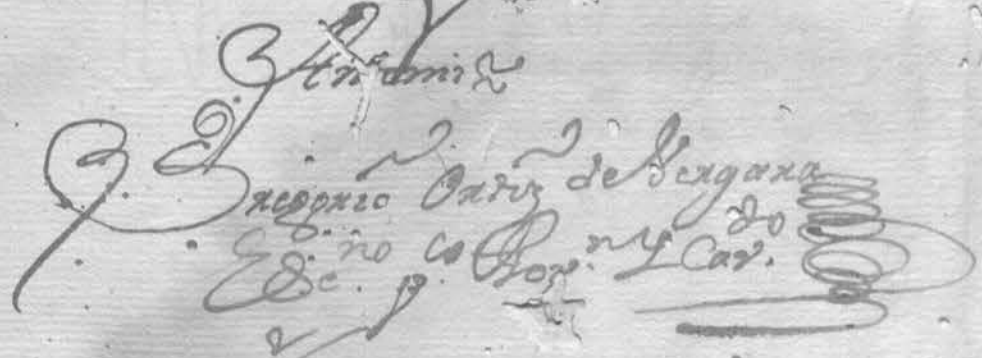 Ante mi
Gregorio Ortiz de Vergara
Ess.no pp.co Gov.n y Cav.do